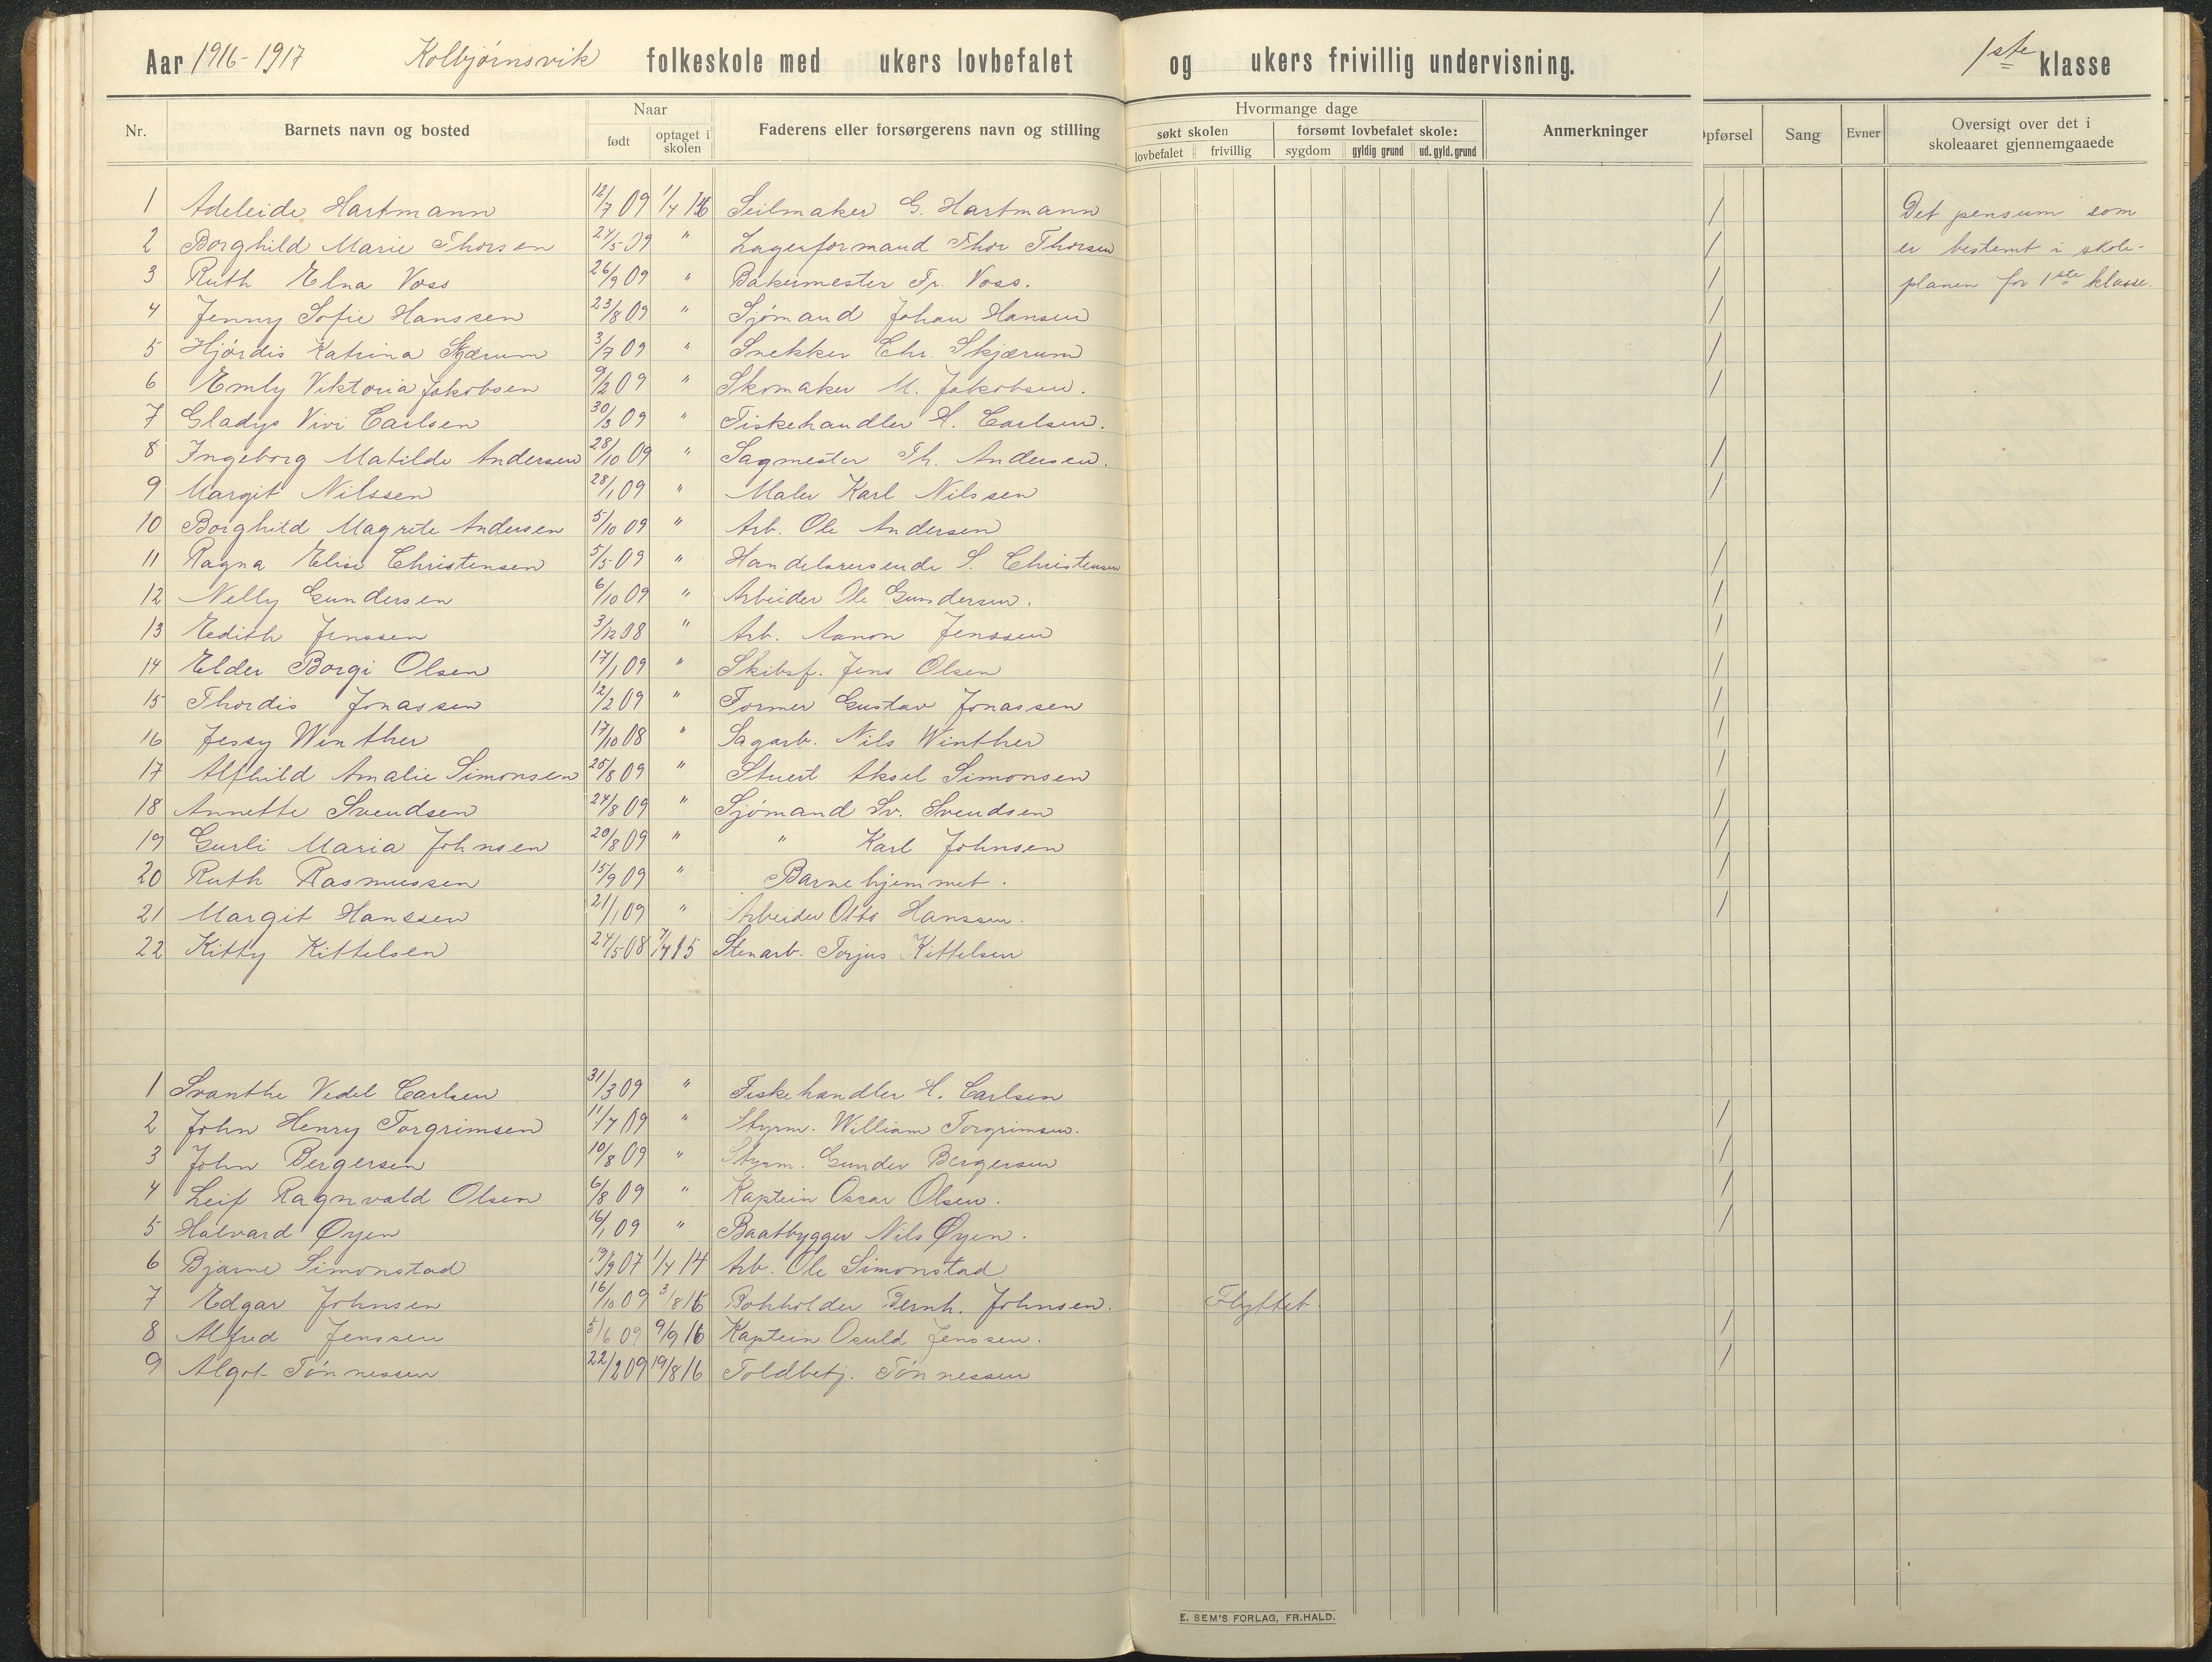 Aar 1916-1917 Kolbjørnsvik folkeskole med ukers lovbefalet og ukers frivillig undervisning. 1ste klasse
Nr. Barnets navn og bosted Naar født optaget i skolen Faderens eller forsørgerens navn og stilling Hvormange dage søkt skolen lovbefalet frivillig forsømt lovbefalet skole: sygdom gyldig grund ud. gyld. grund Anmerkninger Opførsel Sang Evner Oversigt over det i skoleaaret gjennemgaaede
1 Adeleide Hartmann 12/7 09 1/4 16 Seilmaker G. Hartmann / Det pensum som
2 Borghild Marie Thorsen 24/5 09 " Lagerformand Thor Thorsen / er bestemt i skole-
3 Ruth Elna Voss 26/9 09 " Bakermester Fr. Voss. / planen for 1ste klasse.
4 Jenny Sofie Hanssen 23/8 09 " Sjømand Johan Hansen /
5 Hjørdis Katrina Skjærum 3/7 09 " Snekker Chr. Skjærum /
6 Emly Viktoria Jakobsen 9/2 09 " Skomaker M. Jakobsen. /
7 Gladys Vivi Carlsen 30/3 09 " Fiskehandler H. Carlsen.
8 Ingeborg Matilde Andersen 28/10 09 " Sagmester Th. Andersen. /
9 Margit Nilssen 28/1 09 " Maler Karl Nilssen /
10 Borghild Magrete Andersen 5/10 09 " Arb. Ole Andersen
11 Ragna Elise Christensen 5/5 09 " Handelsreisende S. Christensen /
12 Nelly Gundersen 6/10 09 " Arbeider Ole Gundersen. /
13 Edith Jenssen 3/12 08 " Arb. Aanon Jenssen /
14 Elder Borgi Olsen 17/1 09 " Skibsf. Jens Olsen /
15 Thordis Jonassen 12/2 09 " Former Gustav Jonassen /
16 Jessy Winther 17/10 08 " Sagarb. Nils Winther /
17 Alfhild Amalie Simonsen 25/8 09 " Stuert Aksel Simonsen /
18 Annette Svendsen 24/8 09 " Sjømand Sv. Svendsen /
19 Gurli Maria Johnsen 20/8 09 " " Karl Johnsen /
20 Ruth Rasmussen 15/9 09 " Barnehjemmet. /
21 Margit Hanssen 21/1 09 " Arbeider Otto Hanssen. /
22 Kitty Kittelsen 24/5 08 7/4 15 Stenarb. Torjus Kittelsen
1 Svanthe Vedel Carlsen 31/3 09 " Fiskehandler H. Carlsen
2 John Henry Torgrimsen 11/7 09 " Styrm. William Torgrimsen. /
3 John Bergersen 10/8 09 " Styrm. Gunder Bergersen /
4 Leif Ragnvald Olsen 6/8 09 " Kaptein Oscar Olsen. /
5 Halvard Øyen 16/1 09 " Baatbygger Nils Øyen. /
6 Bjarne Simonstad 19/9 07 1/4 14 Arb. Ole Simonstad
7 Edgar Johnsen 16/10 09 3/8 16 Bokholder Bernh. Johnsen. Flyttet.
8 Alfred Jenssen 5/6 09 9/9 16 Kaptein Osuld Jenssen. /
9 Algot Tønnessen 22/2 09 19/8 16 Toldbetj. Tønnessen /
E. SEM'S FORLAG, FR.HALD.